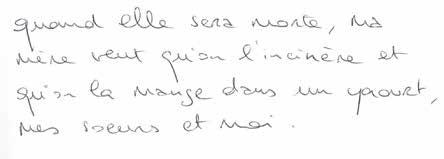 quand elle sera morte, ma
mère veut qu'on l'incinère et
qu'on la mange dans un yaourt,
mes soeurs et moi.